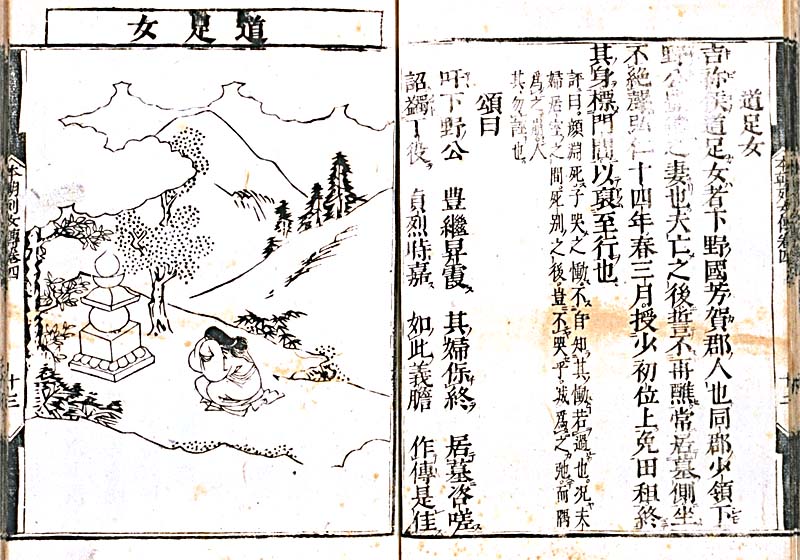 道足女
吉弥侯道足女者下野國芳賀郡人也同郡少領下
野公豐繼之妻也夫亡之後誓不再醮常居墓側
不絶聲弘仁十四年春三月授少初位上免田租終
其身標門閭以哀至行也
評曰顔淵死子哭之慟不自知其慟若過也况夫
婦居室之間死別之後豈不哭乎城爲之弛而隅
爲之崩人
其勿誣也
頌曰
吁下野公 豊繼昇霞 其婦保終 居墓咨嗟
詔蠲丁役 貞烈時嘉 如此義膽 作傳是佳
本朝列女傳卷四
十二
道足女
本朝列女傳卷四
十二